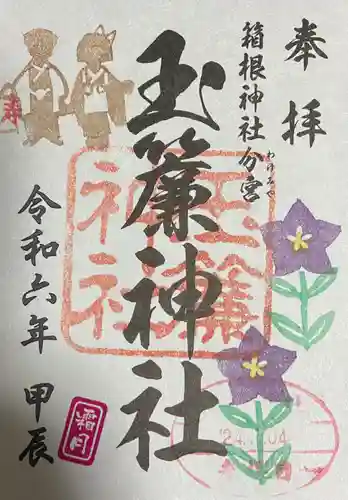 奉拝
箱根神社分宮
わけみや
玉簾神社
玉簾神社
令和六年 甲辰
霜月